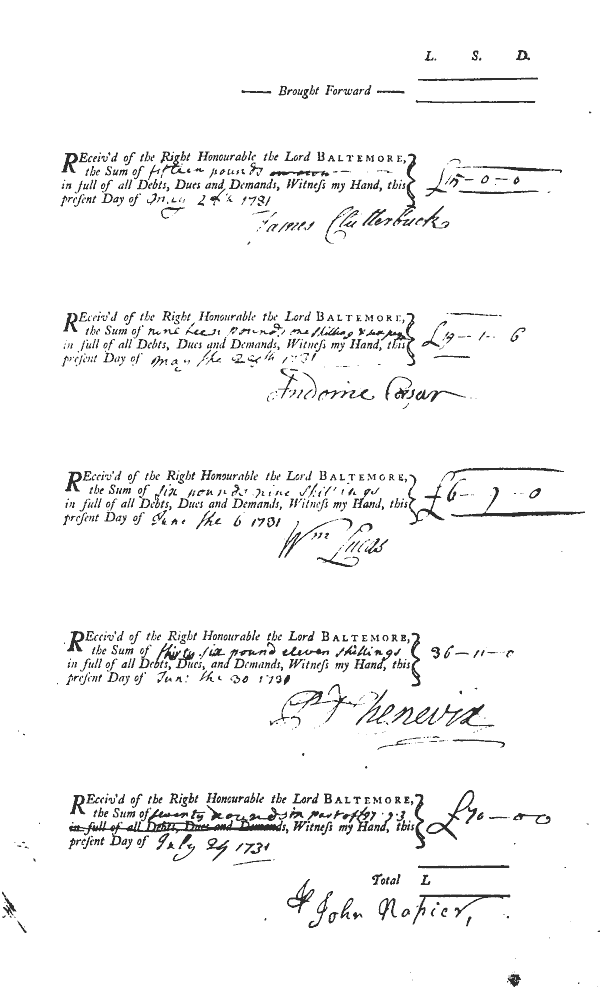 L. S. D.
Brought Forward
REceiv'd of the Right Honourable the Lord BALTEMORE,
the Sum of fifteen pounds
in full of all Debts, Dues and Demands, Witneſs my Hand, this
preſent Day of May 1731
£15-0-0
James Clutterbuck
REceiv'd of the Right Honourable the Lord BALTEMORE,
the Sum of nine teen pounds one shilling &
in full of all Debts, Dues and Demands, Witneſs my Hand, this
preſent Day of May the 1731
£19-1-6
REceiv'd of the Right Honourable the Lord BALTEMORE,
the Sum of six pounds nine shillings
in full of all Debts, Dues and Demands, Witneſs my Hand, this
preſent Day of June the 6 1731
£6-9-0
Wm Lucas
REceiv'd of the Right Honourable the Lord BALTEMORE,
the Sum of thirty six pound eleven shillings
in full of all Debts, Dues, and Demands, Witneſs my Hand, this
preſent Day of Jun: the 30 1731
36-11-0
Chenevix
REceiv'd of the Right Honourable the Lord BALTEMORE,
the Sum of seventy pounds in part of
in full of all Debts, Dues and Demands, Witneſs my Hand, this
preſent Day of July 29 1731
£70-00
Total L
John Napier,